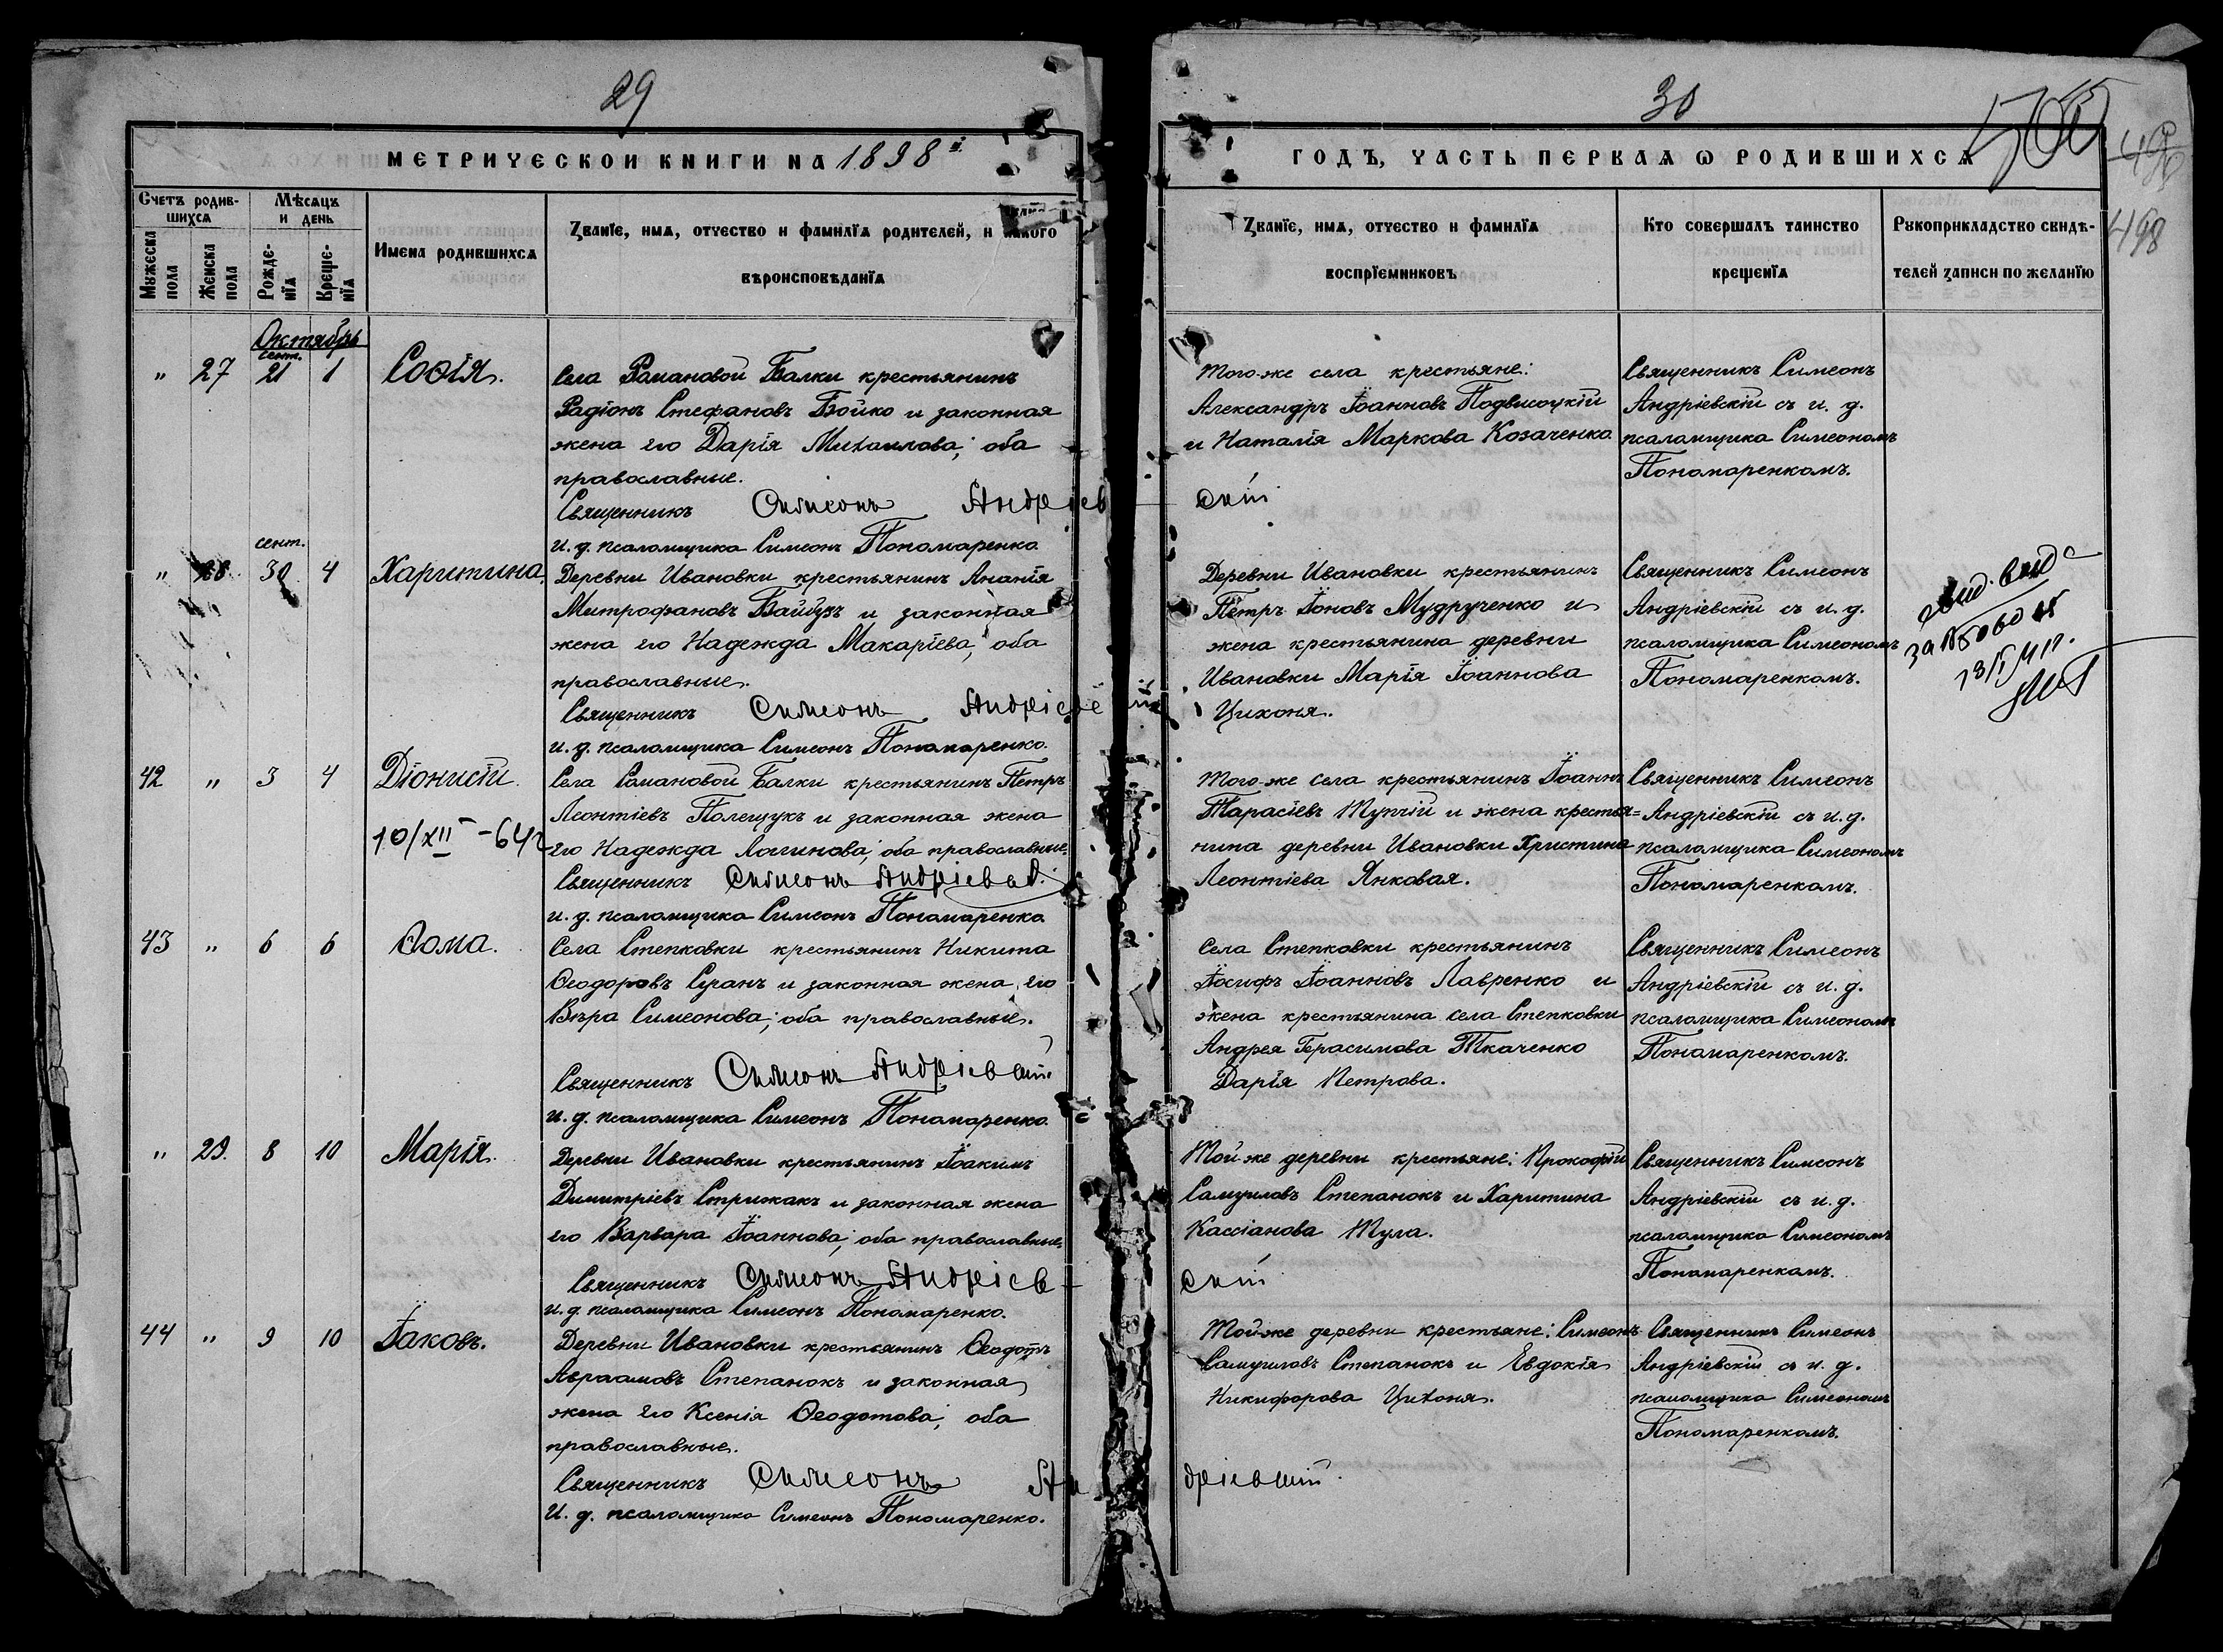 29
МЕТРИЧЕСКОЙ КНИГИ НА 1898й
Счетъ родив-
шихся
Мѣсяцъ
и день
Мужеска
пола
Женска
пола
Рожде-
нія
Креще-
нія
Имена родившихся
Званіе, имя, отчество и фамилія родителей, и какого
вѣроисповѣданія
Октябрь
сент.
" 27 21 1 Софія.
Села Романовой Балки крестьянинъ
Радіонъ Стефановъ Бойко и законная
жена его Дарія Михаилова; оба
православные.
Священникъ Симеонъ Андріев
и. д. псаломщика Симеонъ Пономаренко
сент.
" 28. 30 4 Харитина.
Деревни Ивановки крестьянинъ Ананія
Митрофановъ Байбузъ и законная
жена его Надежда Макаріева; оба
православные.
Священникъ Симеонъ Андріевскій
и. д. псаломщика Симеонъ Пономаренко.
42 " 3 4 Діонисій.
10/XII-64г
Села Романовой Балки крестьянинъ Петръ
Леонтіевъ Полещукъ и законная жена
его Надежда Логинова; оба православные.
Священникъ Симеонъ Андріевскій.
и. д. псаломщика Симеонъ Пономаренко
43 " 6 6 Ѳома.
Села Степковки крестьянинъ Никита
Ѳеодоровъ Суранъ и законная жена его
Вѣра Симеонова; оба православные.
Священникъ Симеонъ Андріевскій
и. д. псаломщика Симеонъ Пономаренко.
" 29. 8 10 Марія.
Деревни Ивановки крестьянинъ Іоакимъ
Димитріевъ Стрижакъ и законная жена
его Варвара Іоаннова; оба православные.
Священникъ Симеонъ Андріев-
и. д. псаломщика Симеонъ Пономаренко.
44 " 9 10 Іаковъ.
Деревни Ивановки крестьянинъ Ѳеодотъ
Авраамовъ Степанокъ и законная
жена его Ксенія Ѳеодотова; оба
православные.
Священникъ Симеонъ Ан
И. д. псаломщика Симеонъ Пономаренко.
30
505
496
498
ГОДЪ, ЧАСТЬ ПЕРВАЯ Ѡ РОДИВШИХСЯ
Званіе, имя, отчество и фамилія
воспріемниковъ
Кто совершалъ таинство
крещенія
Рукоприкладство свидѣ-
телей записи по желанію
Того-же села крестьяне:
Александръ Іоанновъ Подвисоцкій
и Наталія Маркова Козаченко
скій
Священникъ Симеонъ
Андріевскій съ и. д.
псаломщика Симеономъ
Пономаренкомъ.
Деревни Ивановки крестьянинъ
Петръ Іоновъ Мудрученко и
жена крестьянина деревни
Ивановки Марія Іоаннова
Цихоня.
Священникъ Симеонъ
Андріевскій съ и. д.
псаломщика Симеономъ
Пономаренкомъ.
Того-же села крестьянинъ Іоаннъ
Тарасіевъ Тупчій и жена крестья=
нина деревни Ивановки Христина
Леонтіева Янковая.
Священникъ Симеонъ
Андріевскій съ и. д.
псаломщика Симеономъ
Пономаренкомъ.
Села Степковки крестьянинъ
Іосифъ Іоанновъ Лавренко и
жена крестьянина села Степковки
Андрея Герасимова Ткаченко
Дарія Петрова.
Священникъ Симеонъ
Андріевскій съ и. д.
псаломщика Симеономъ
Пономаренкомъ.
Той же деревни крестьяне: Прокофій
Самуиловъ Степанокъ и Харитина
Кассіанова Тула.
скій
Священникъ Симеонъ
Андріевскій съ и. д.
псаломщика Симеономъ
Пономаренкомъ.
Той-же деревни крестьяне: Симеонъ
Самуиловъ Степанокъ и Евдокія
Никифорова Цихоня.
дріевскій
Священникъ Симеонъ
Андріевскій съ и. д.
псаломщика Симеономъ
Пономаренкомъ.